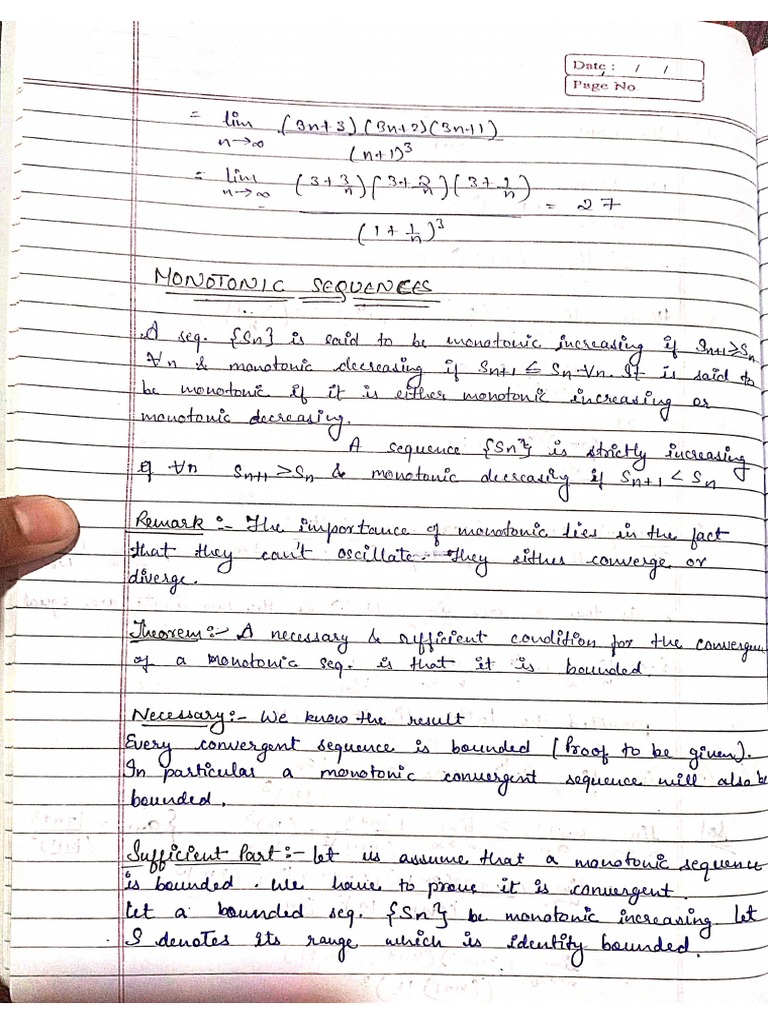 Date : / /
Page No
= lim (3n+3)(3n+2)(3n+1)
n→∞ (n+1)³
= lim (3+3/n)(3+2/n)(3+1/n) = 27
n→∞ (1+1/n)³
MONOTONIC SEQUENCES
A seq. {Sn} is said to be monotonic increasing if Sn+1≥Sn
∀n & monotonic decreasing if Sn+1 ≤ Sn ∀n. It is said to
be monotonic if it is either monotonic increasing or
monotonic decreasing.
A sequence {Sn} is strictly increasing
if ∀n Sn+1 ≥Sn & monotonic decreasing if Sn+1 < Sn
Remark :- The importance of monotonic lies in the fact
that they can't oscillate. They either converge or
diverge.
Theorem :- A necessary & sufficient condition for the convergen
of a monotonic seq. is that it is bounded.
Necessary :- We know the result
Every convergent sequence is bounded (Proof to be given).
In particular a monotonic convergent sequence will also be
bounded.
Sufficient Part :- let us assume that a monotonic sequence
is bounded. We have to prove it is convergent.
Let a bounded seq. {Sn} be monotonic increasing. Let
S denotes its range which is identity bounded.